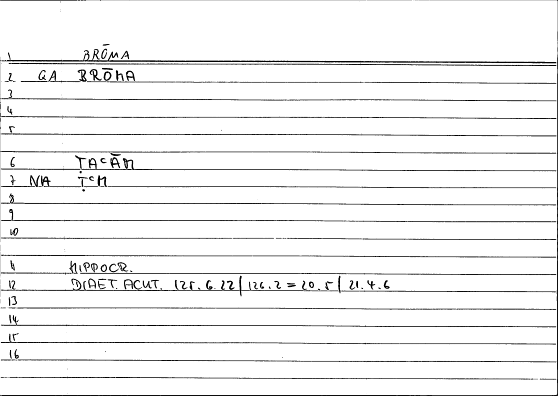 1 BRŌMA
2 GA BRŌMA
3
4
5
6 ṬAᶜĀM
7 NA ṬᶜM
8
9
10
11 HIPPOCR.
12 DIAET. ACUT. 125.6.22 | 126.2 = 20.5 | 21.4.6
13
14
15
16